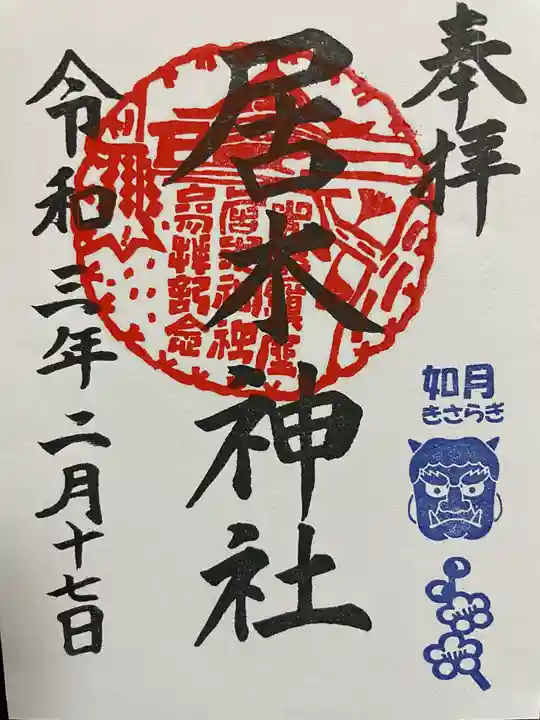 奉拝
如月
きさらぎ
居木神社
居木神社
参拝記念
令和三年二月十七日